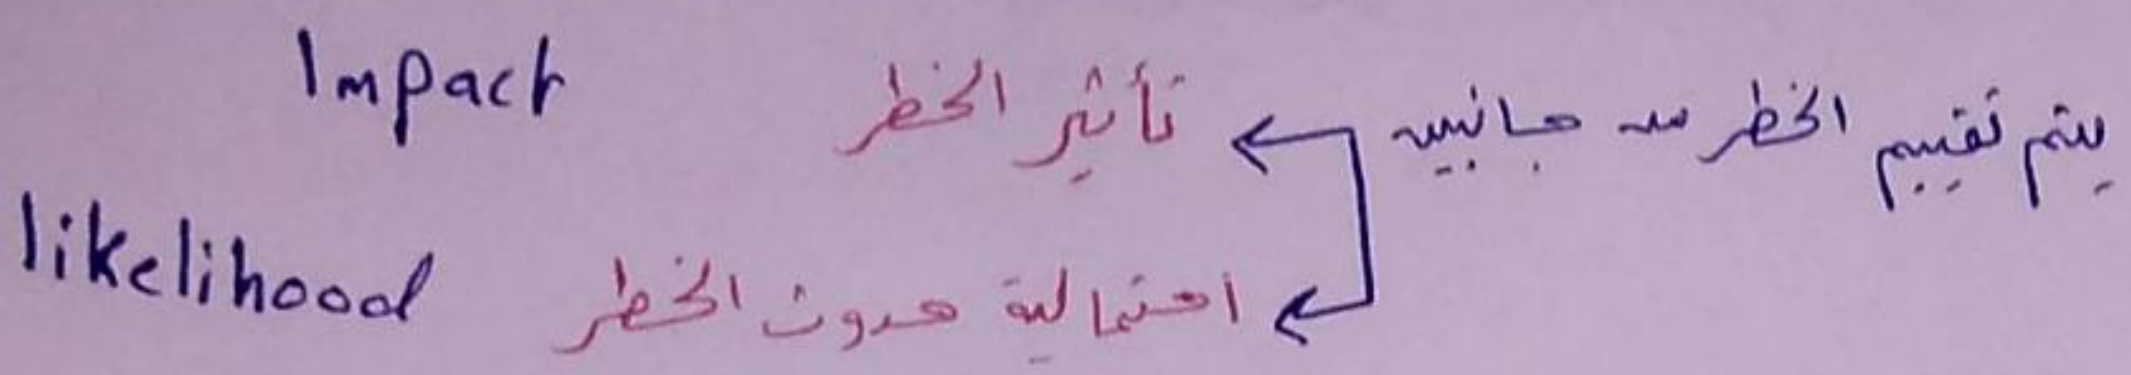 يتم تقييم الخطر من جانبين
تأثير الخطر Impact
احتمالية حدوث الخطر likelihood